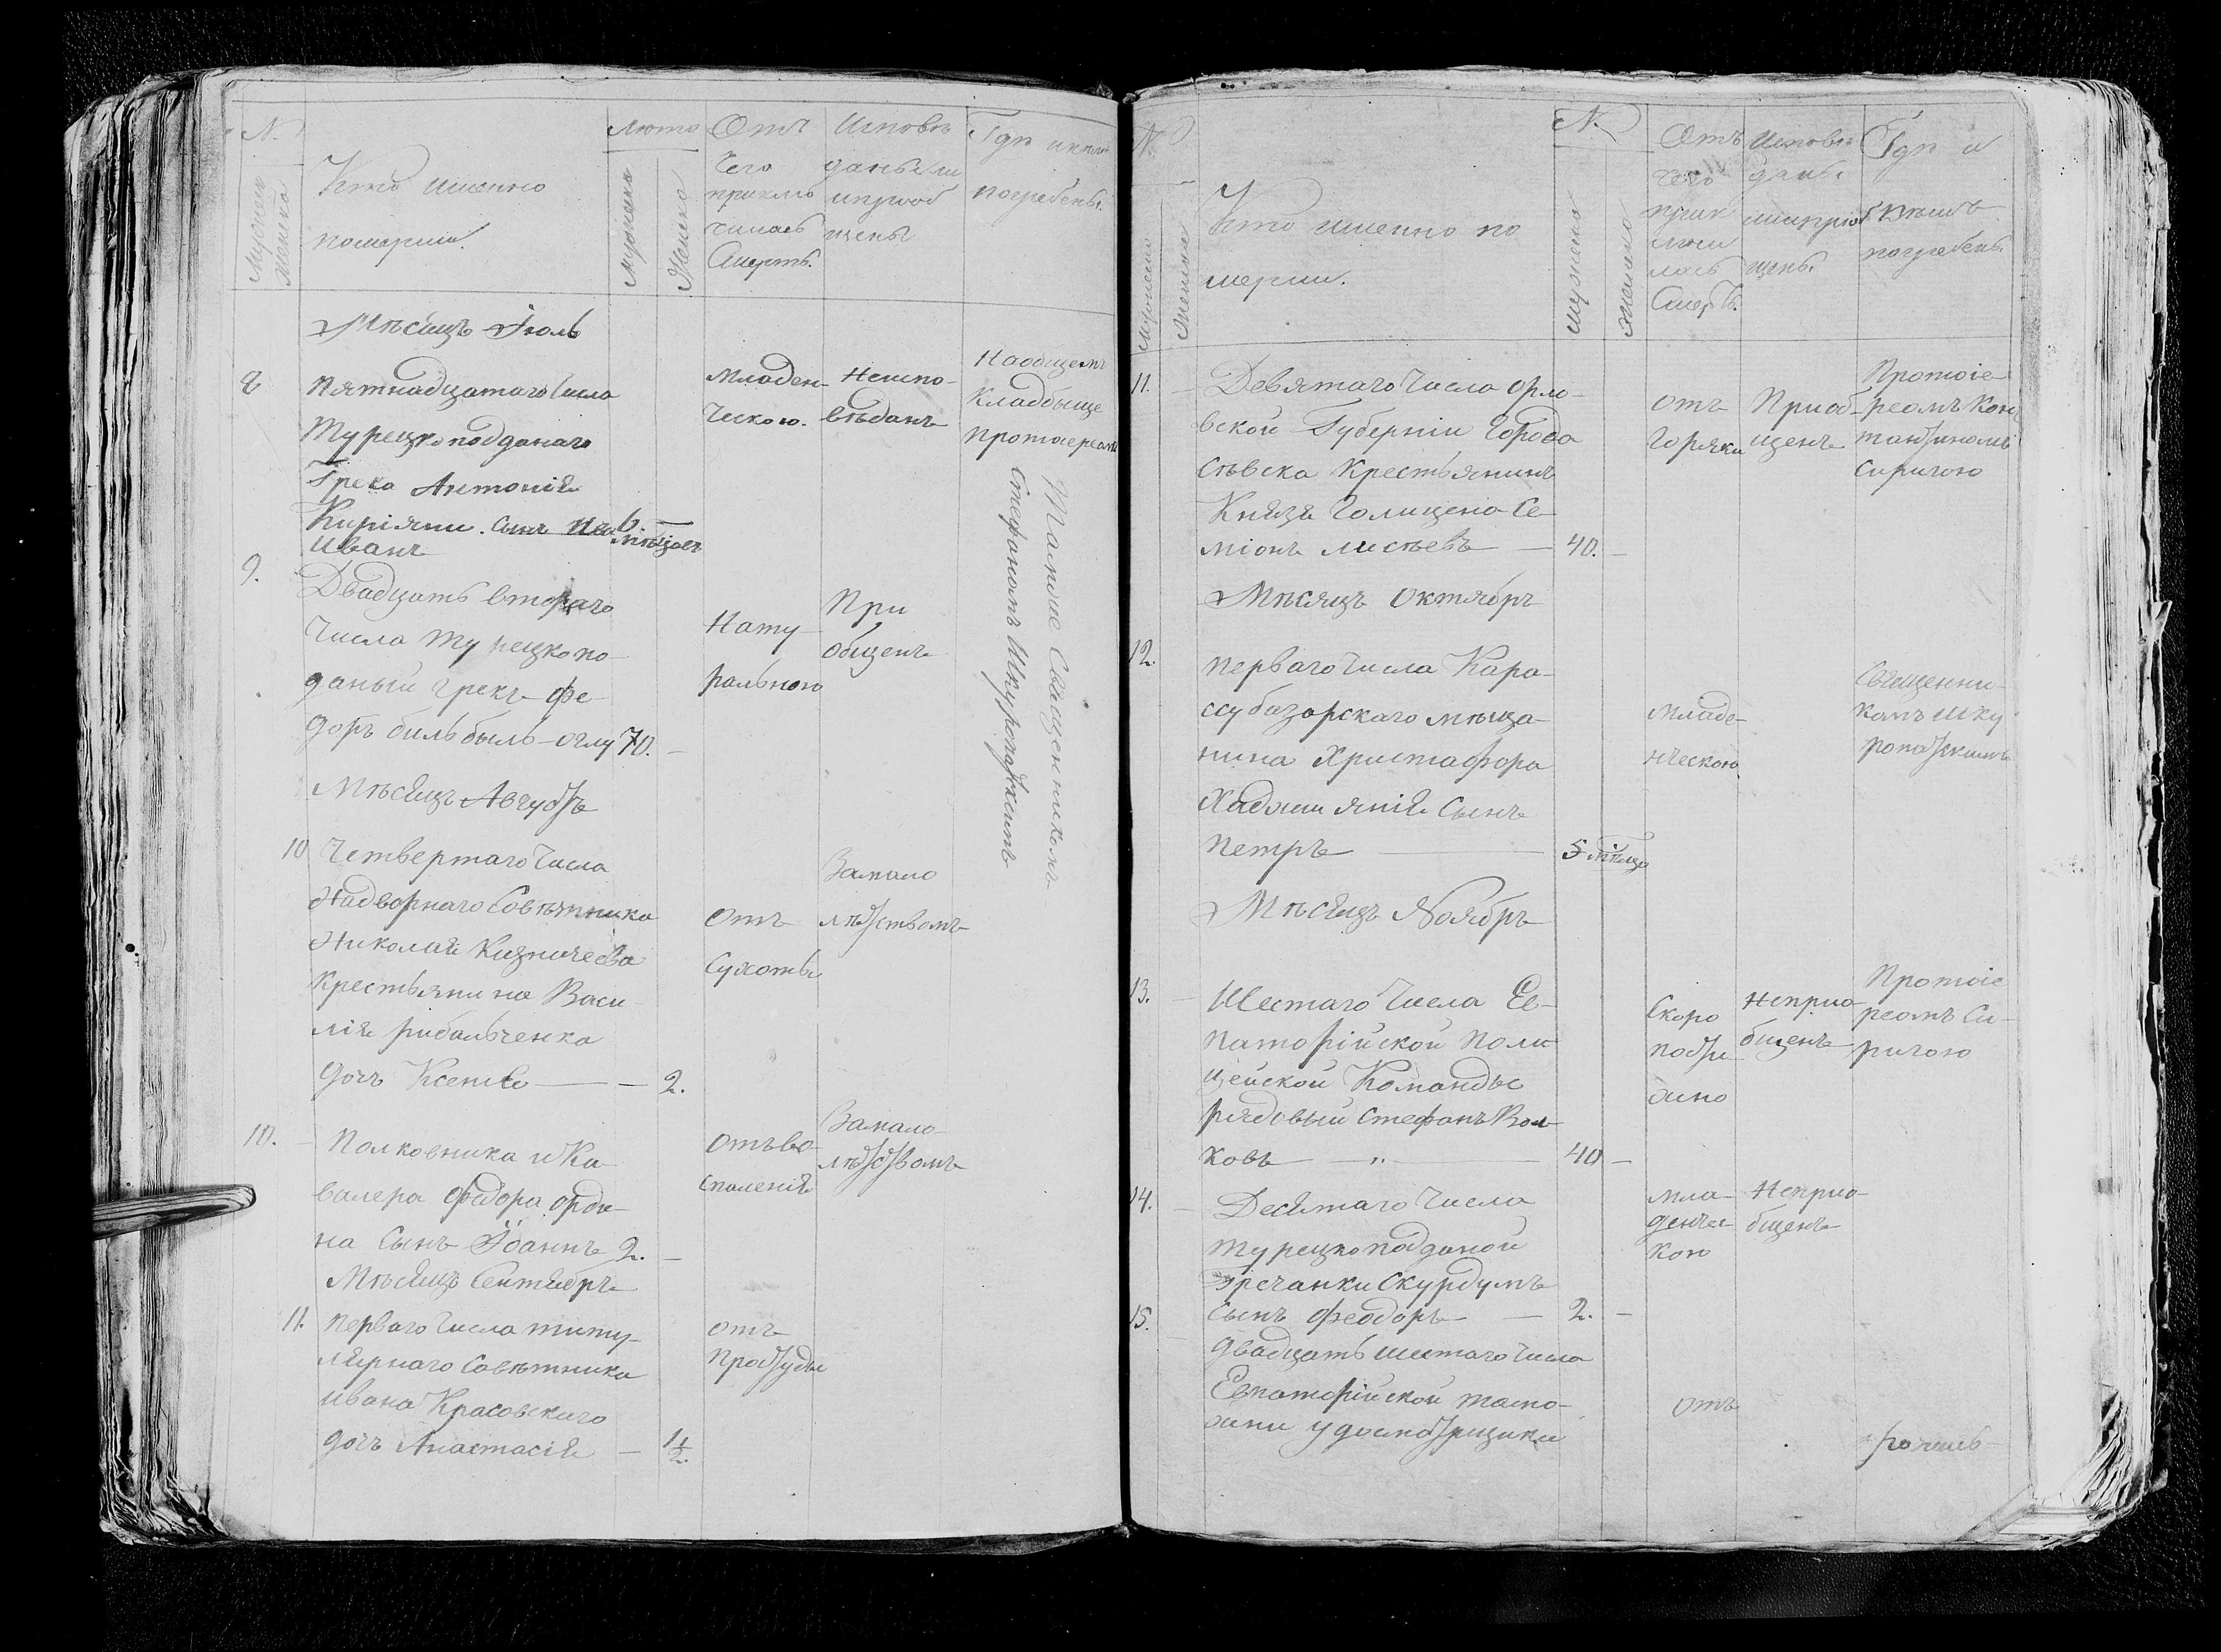 N.
Мужеска
Женска
Кто именно
померли.
Лета
Мужеска
Женска
Отъ
чего
приклю
чилась
Смерть.
Исповѣ
даны ли
и приоб
щены
Где и кѣмъ
погребены.
Мѣсяцъ Іюль
8
Пятнадцатаго числа
Турецкоподданаго
Грека Антонія
Киріяни. сынъ
Иванъ
6
мѣсяцовъ
младен-
ческою.
Неиспо-
вѣданъ
На общемъ
Кладбище
протоереомъ
Также Священникомъ
Стефаномъ Шкуропатскимъ
9.
Двадцать втораго
числа Турецкопо-
даный грекъ Фе-
доръ бильбыль-оглу 70. –
Нату-
ральною
При
общенъ
Мѣсяцъ Августъ
10
Четвертаго числа
Надворнаго Совѣтника
Николая Кизничеева
Крестьянина Васи-
лія рибальченка
дочь Ксенія — — 2.
отъ
Сухоты
За мало
лѣтствомъ
10. –
Полковника и Ка-
валера Федора орди-
на Сынъ Іоаннъ 2. –
отъ во-
спаленія
За мало-
лѣтствомъ
Мѣсяцъ Сентябръ
11.
перваго числа титу-
лярнаго Совѣтника
ивана Красовскаго
дочь Анастасія — 1 1/2.
отъ
простуды
N.
Мужеска
Женска
Кто именно по
мерли.
N.
Мужеска
Женска
Отъ
чего
прик
лючи
лась
Смерть.
Исповѣ
даны
или приоб
щены
Где и
кѣмъ
погребены.
11. –
Девятаго числа орло-
вской Губерніи Города
Сѣвска Крестьянинъ
Князя Голицена Се-
міонъ лисѣевъ — 40. –
отъ
Горячки
Приоб-
щенъ
Протоіе-
реомъ Конс
тантиномъ
Сиригою
Мѣсяцъ Октябръ
12.
перваго числа Кара-
субазарскаго мѣща-
нина Христафора
Хаджи янія Сынъ
Петръ — 5 мѣсяцо
младе-
нческою
Священни-
комъ Шку
ропатскимъ
Мѣсяцъ Ноябръ
13. –
Шестаго числа Ев-
паторійской поли
цейской Команды
рядовый Стефанъ Вол-
ковъ — „ — 40 –
Скоро
пости
жно
Неприо-
бщенъ
Протоіе
реомъ Си-
ригою
14. –
Десятаго числа
турецкоподданой
Гречанки Скурдумъ
Сынъ Феодоръ — 2. –
мла-
денчес-
кою
Неприо-
бщенъ
15.
Двадцать шестаго числа
Евпаторійской тамо-
жни у досмотрщика
отъ